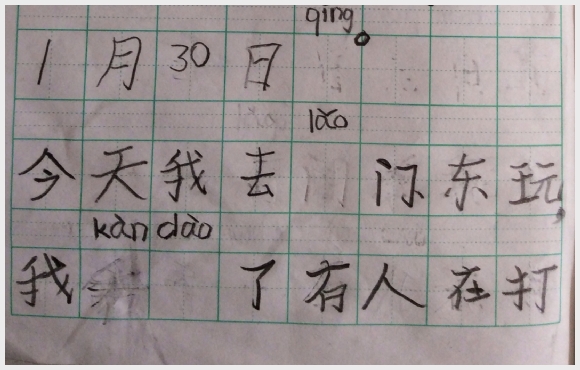 qing。
1月30日
lǎo
今天我去门东玩，
kàn dào
我了有人在打